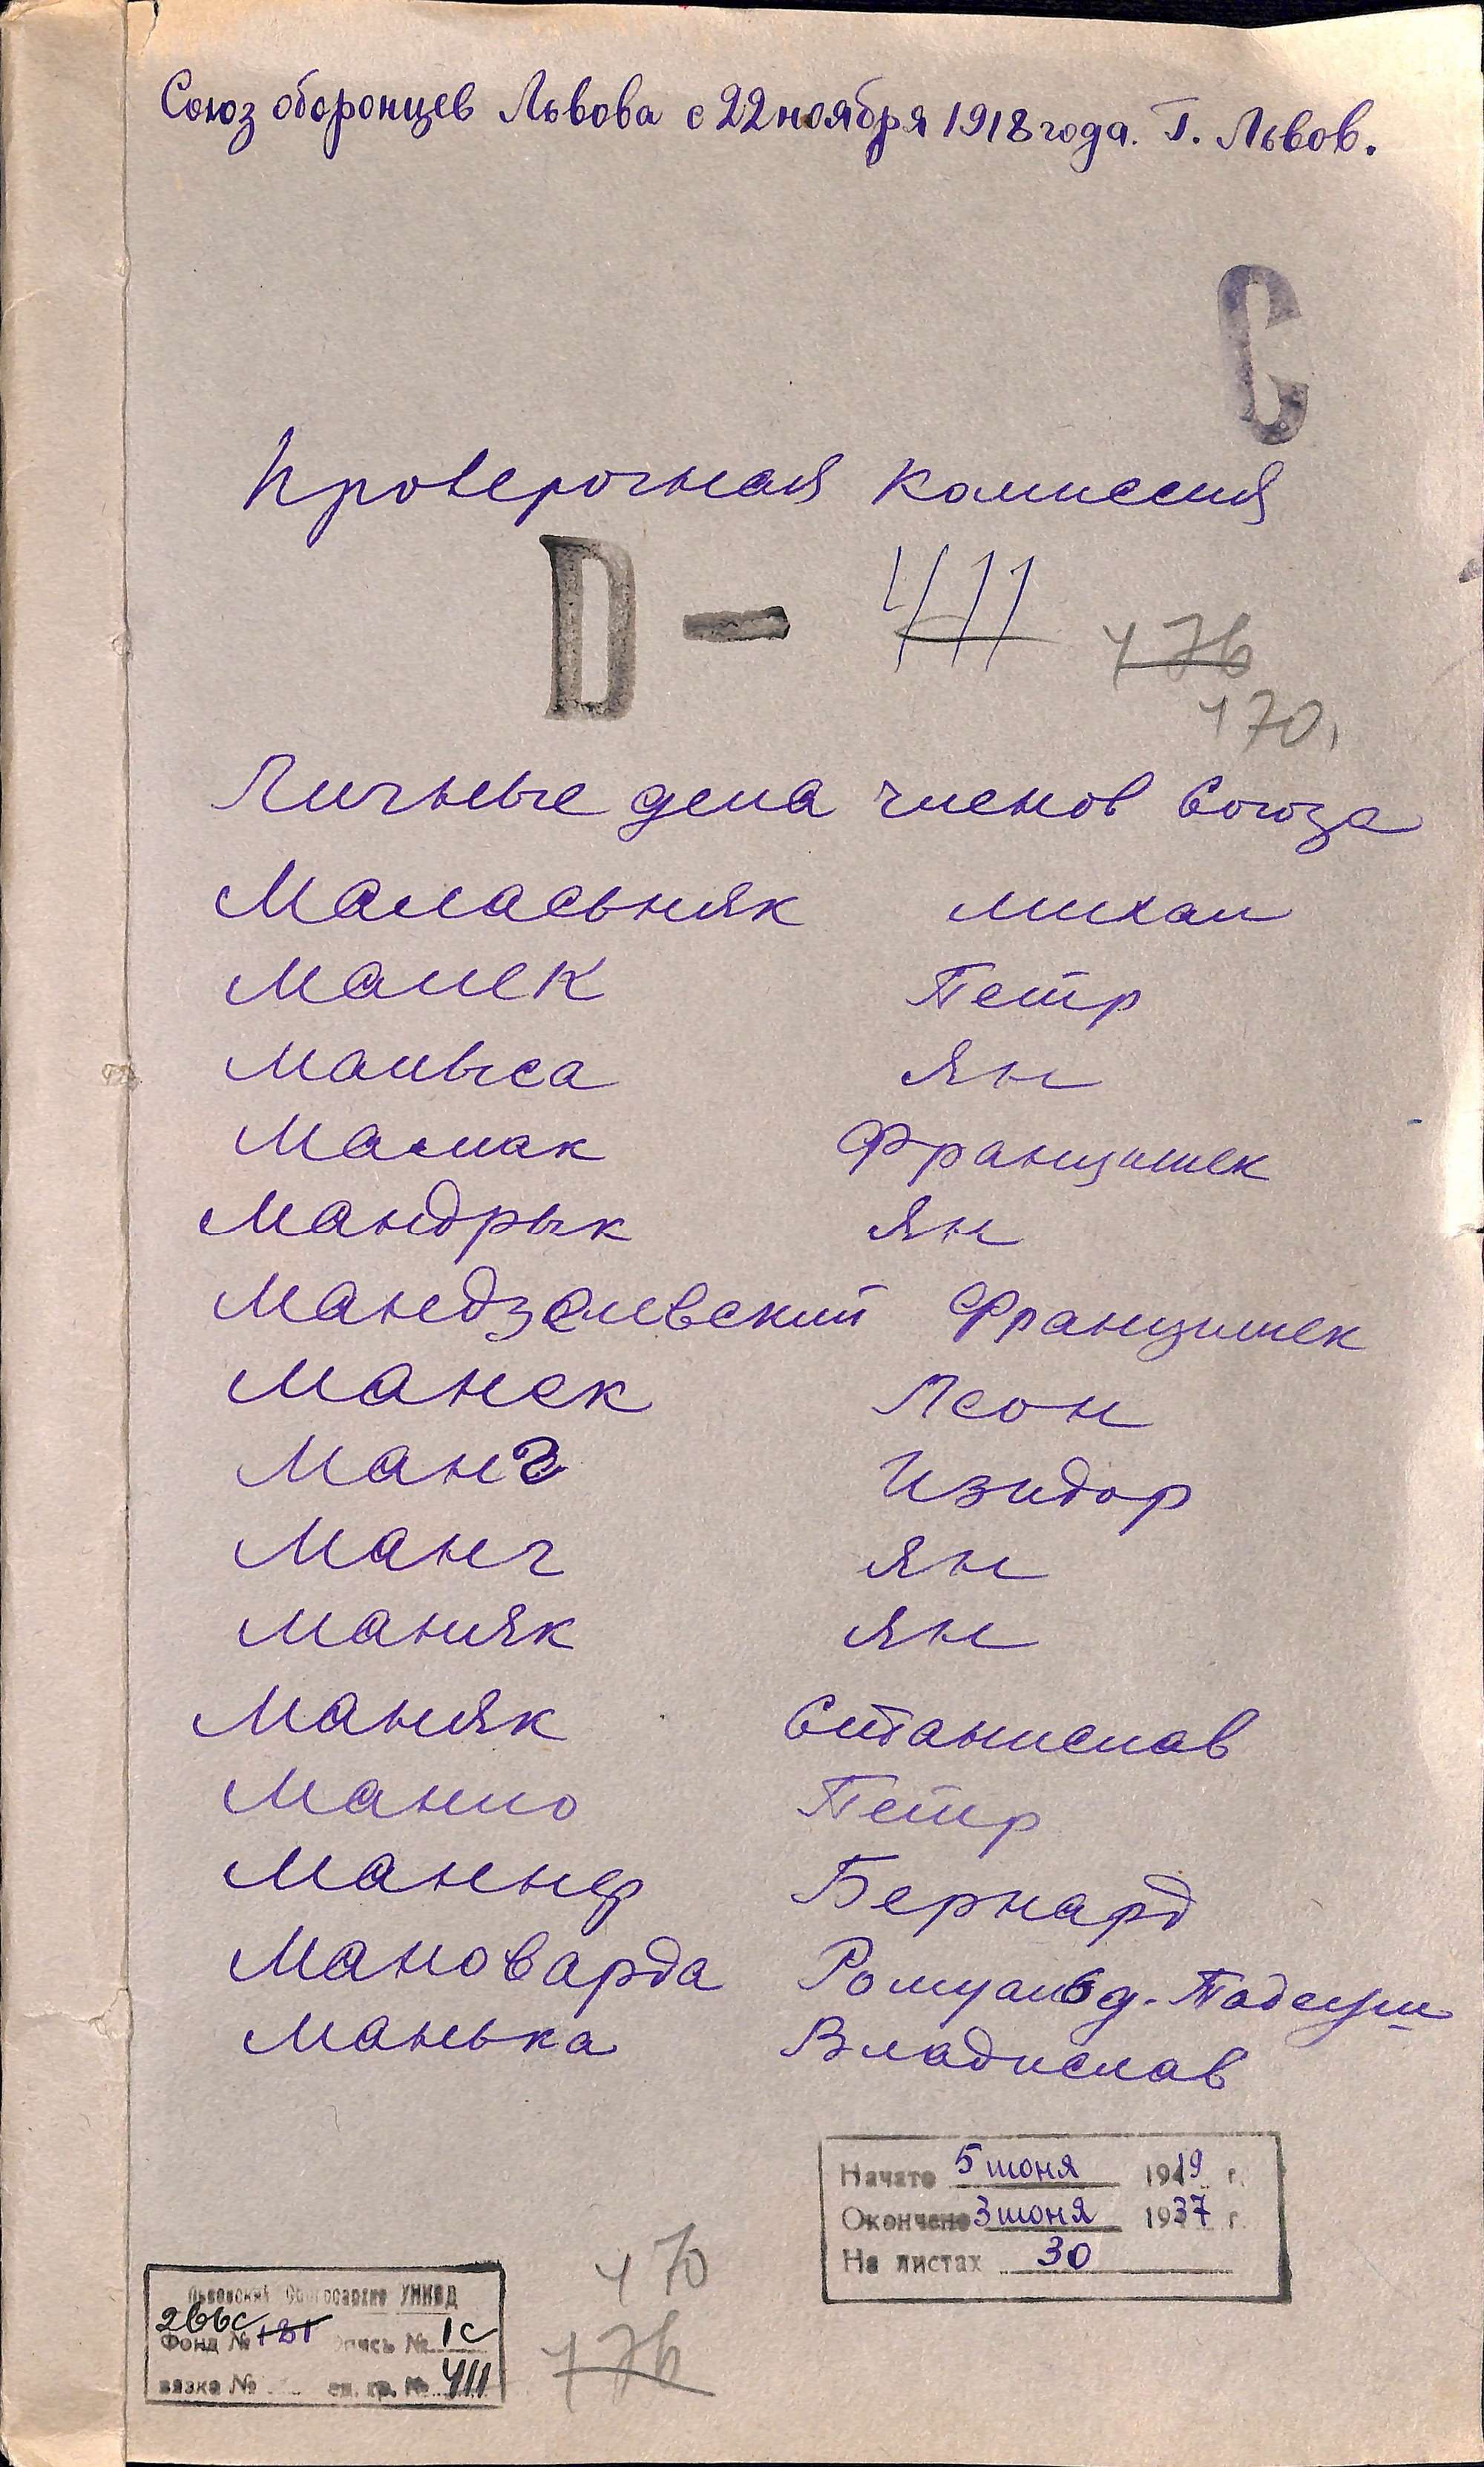 Союз оборонцев Львова с 22 ноября 1918 года. Г. Львов.
С
Проверочная комиссия
D — 411 476
470
Личные дела членов Союза
Маласьняк Михал
Малек Петр
Малыса Ян
Мамак Францишек
Мандрык Ян
Мандзелевский Францишек
Манек Леон
Манг Изидор
Манг Ян
Маняк Ян
Маняк Станислав
Манио Петр
Маннер Бернард
Мановарда Ромуальд-Тадеуш
Манька Владислав
Начато 5 июня 1919 г.
Окончено 3 июня 1937 г.
На листах 30
470
476
Львовский Облгосархив УНКВД
266с
Фонд № 121 Опись № 1с
вязка № ед. хр. № 411